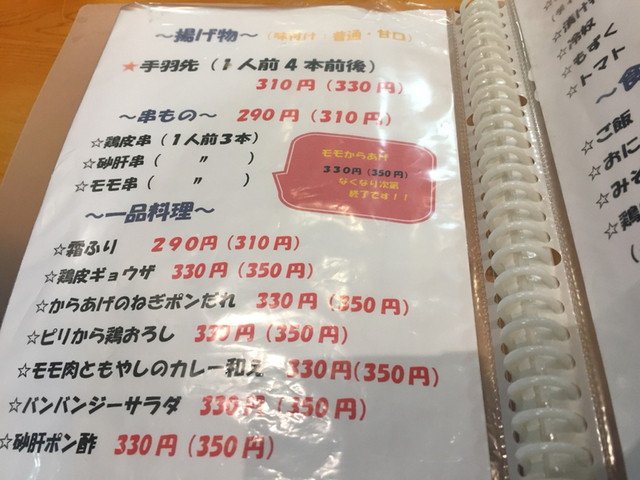 ～揚げ物～（味付け　普通・甘口）
★手羽先（１人前４本前後）
310円（330円）
～串もの～ 290円（310円）
☆鶏皮串（１人前３本）
☆砂肝串（　〃　）
☆モモ串（　〃　）
モモからあげ
330円（350円）
なくなり次第
終了です！！
～一品料理～
☆霜ふり　290円（310円）
☆鶏皮ギョウザ　330円（350円）
☆からあげのねぎポンだれ　330円（350円）
☆ピリから鶏おろし　330円（350円）
☆モモ肉ともやしのカレー和え　330円（350円）
☆バンバンジーサラダ　330円（350円）
☆砂肝ポン酢　330円（350円）
☆揚げ
☆冷奴
☆もずく
☆トマト
～食
☆ご飯
☆おに
☆みそ
☆鶏
（